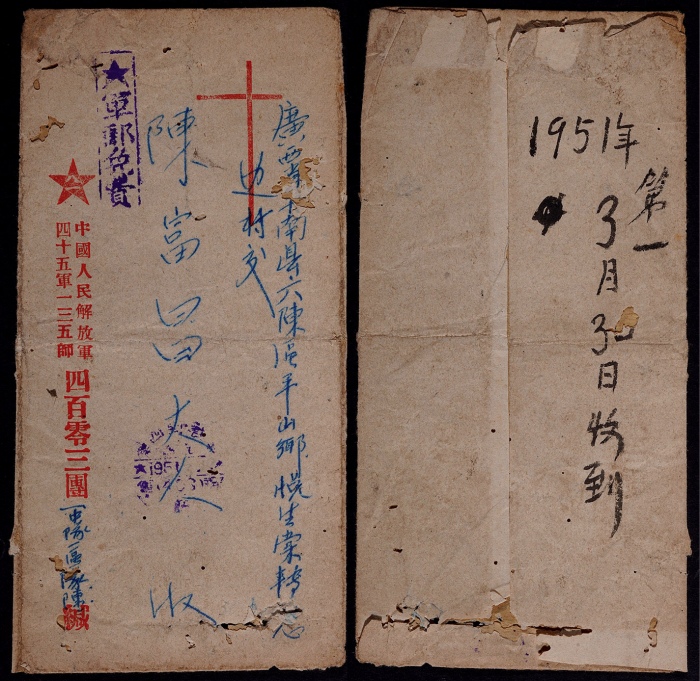 廣西平南县六陳區平山鄉生棠轉
边村交
陳富昌大人 收
軍郵免費
1951
中國人民解放軍
四十五軍一三五師
四百零三團
隊區隊陳緘
1951年
第一
3月30日收到